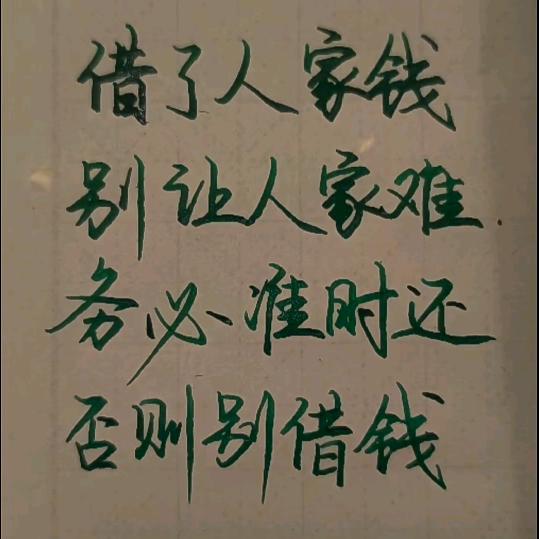 借了人家钱
别让人家难.
务必准时还
否则别借钱